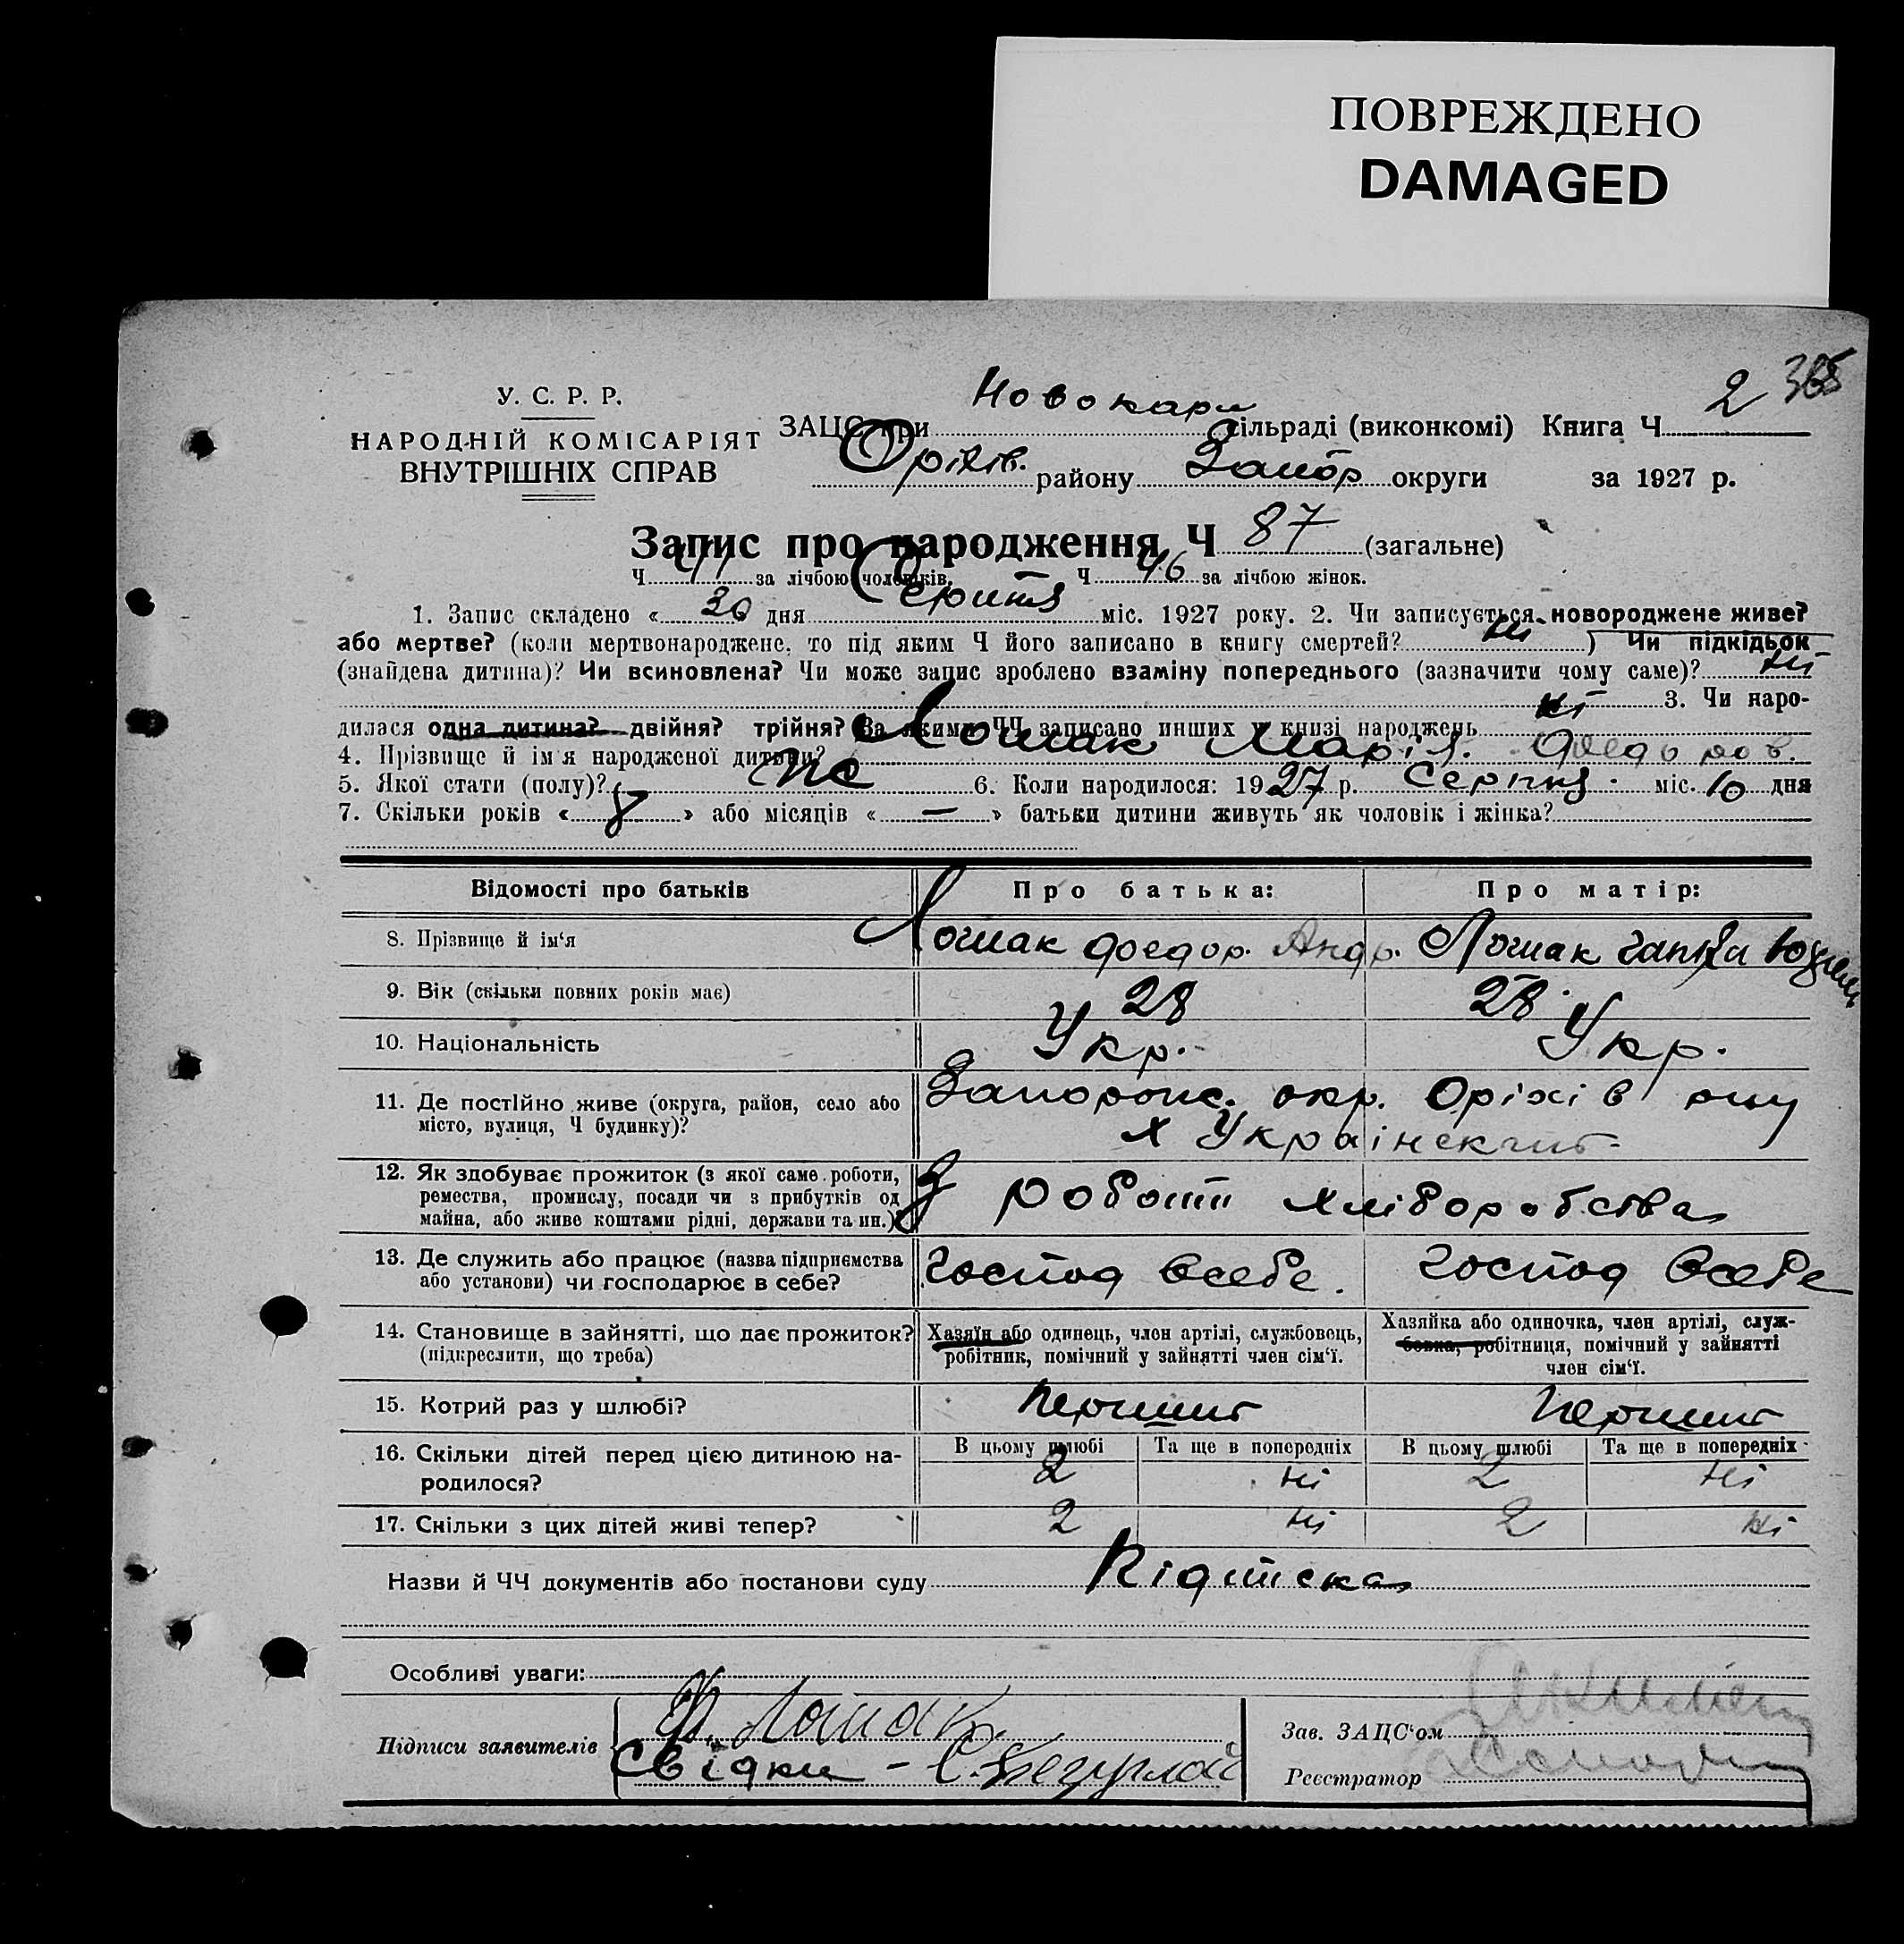 ПОВРЕЖДЕНО
DAMAGED
365
У. С. Р. Р.
НАРОДНІЙ КОМІСАРІЯТ
ВНУТРІШНІХ СПРАВ
ЗАЦС при Новокари сільраді (виконкомі) Книга Ч 2
Оріхів. району Запор округи за 1927 р.
Запис про народження Ч 87 (загальне)
Ч 41 за лічбою чоловіків. Ч 46 за лічбою жінок.
1. Запис складено « 30 дня Серпня міс. 1927 року. 2. Чи записується новороджене живе?
або мертве? (коли мертвонароджене, то під яким Ч його записано в книгу смертей? ні ) Чи підкідьок
(знайдена дитина)? Чи всиновлена? Чи може запис зроблено взаміну попереднього (зазначити чому саме)? ні
ні 3. Чи наро-
дилася одна дитина? двійня? трійня? За якими ЧЧ записано инших у книзі народжень
4. Прізвище й ім'я народженої дитини? Лошак Марія. Федоров.
5. Якої стати (полу)? жс 6. Коли народилося: 1927 р. Серпня міс. 10 дня
7. Скільки років « 8 » або місяців « — » батьки дитини живуть як чоловік і жінка?
Відомості про батьків Про батька: Про матір:
8. Прізвище й ім'я Лошак Федор. Андр. Лошак Гапка
9. Вік (скільки повних років має) 28 28
10. Національність Укр. Укр.
11. Де постійно живе (округа, район, село або Запорож. окр. Оріхів р-ну
місто, вулиця, Ч будинку)? х Українский
12. Як здобуває прожиток (з якої саме роботи,
ремества, промислу, посади чи з прибутків од З роботи хліборобства
майна, або живе коштами рідні, держави та ин.)?
13. Де служить або працює (назва підприємства Господ всебе. Господ всебе
або установи) чи господарює в себе?
14. Становище в зайнятті, що дає прожиток? Хазяїн або одинець, член артілі, службовець, Хазяйка або одиночка, член артілі, служ-
(підкреслити, що треба) робітник, помічний у зайнятті член сім'ї. бовка, робітниця, помічний у зайнятті
член сім'ї.
15. Котрий раз у шлюбі? Перший Перший
16. Скільки дітей перед цією дитиною на- В цьому шлюбі Та ще в попередніх В цьому шлюбі Та ще в попередніх
родилося? 2 ні 2 ні
17. Скільки з цих дітей живі тепер? 2 ні 2 ні
Назви й ЧЧ документів або постанови суду Підписка
Особливі уваги:
Підписи заявителів Ф. Лошак
Свідки –
Зав. ЗАЦС'ом
Реєстратор